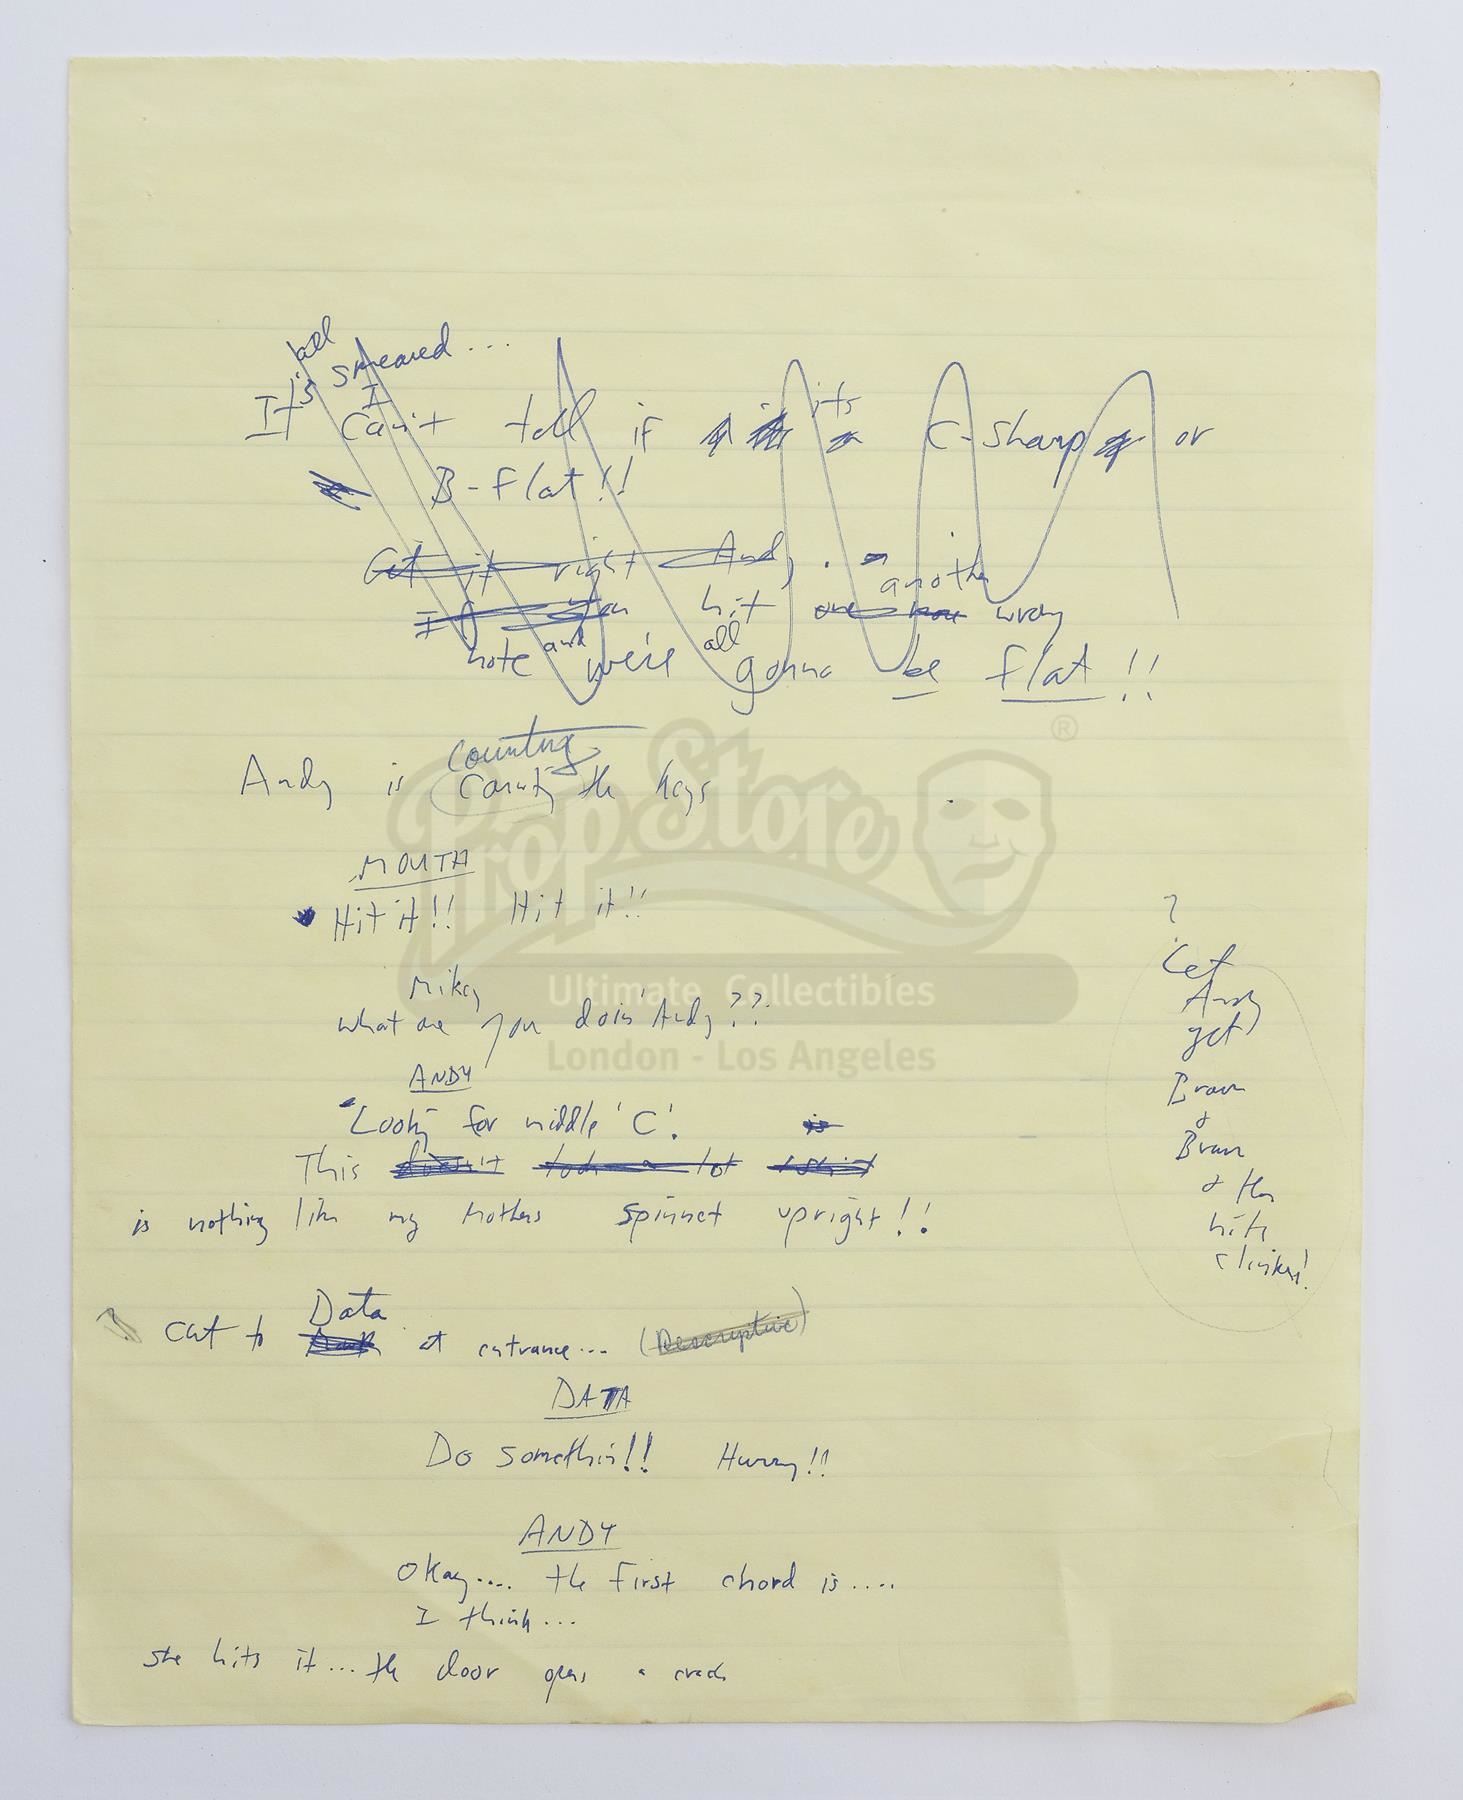 all
It's smeared...
I
Can't tell if its C-Sharp or
B-flat!!
Get it right Andy.
another
If you hit one more wrong
note and we're all gonna be flat!!
counting
Andy is counting the keys
MOUTH
Hit it!! Hit it!!
Mikey
what are you doin' Andy??
ANDY
Looking for middle 'C'.
is
This doesn't look a lot
is nothing like my mothers spinnet upright!!
?
Let
Andy
get
Brave
&
Brave
& then
hits
clinker!
Data
? Cut to at entrance... (Descriptive)
DATA
Do somethin!! Hurry!!
ANDY
Okay.... the first chord is....
I think...
She hits it... the door opens a crack
PropStore ®
Ultimate Collectibles
London - Los Angeles